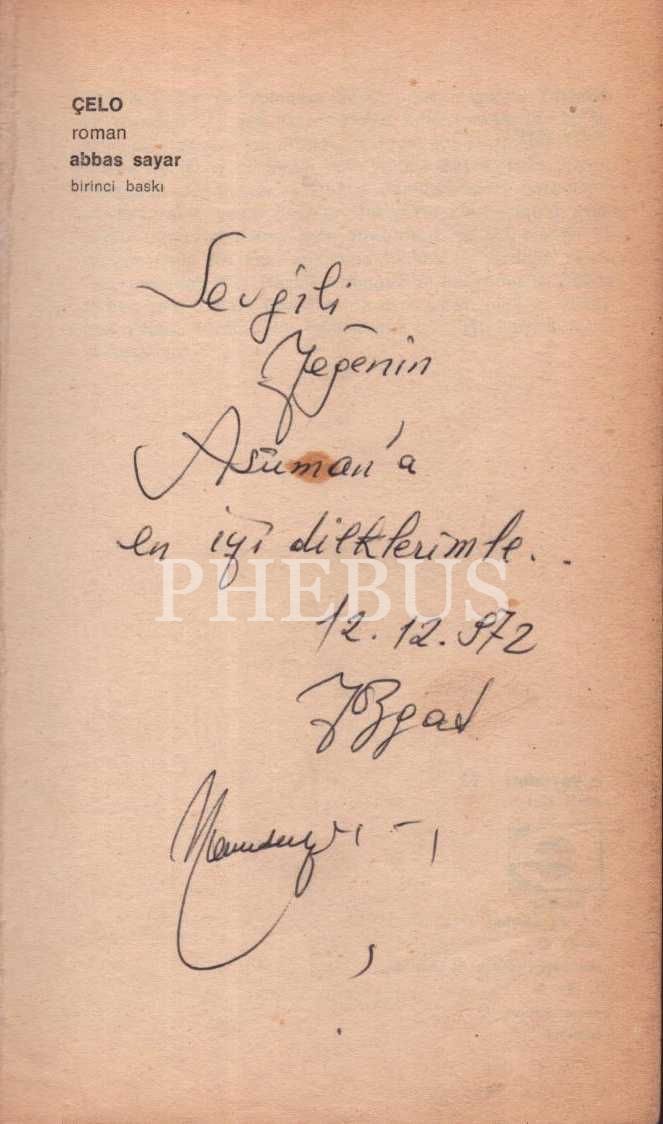 ÇELO
roman
abbas sayar
birinci baskı
Sevgili
Yeğenin
Asüman'a
en iyi dileklerimle..
PHEBUS
12.12.972
Yozgat